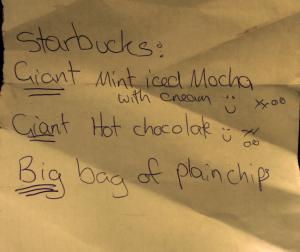 Starbucks:
Giant Mint iced Mocha
with cream :) xxoo
Giant Hot chocolate :) xx
oo
Big bag of plain chips